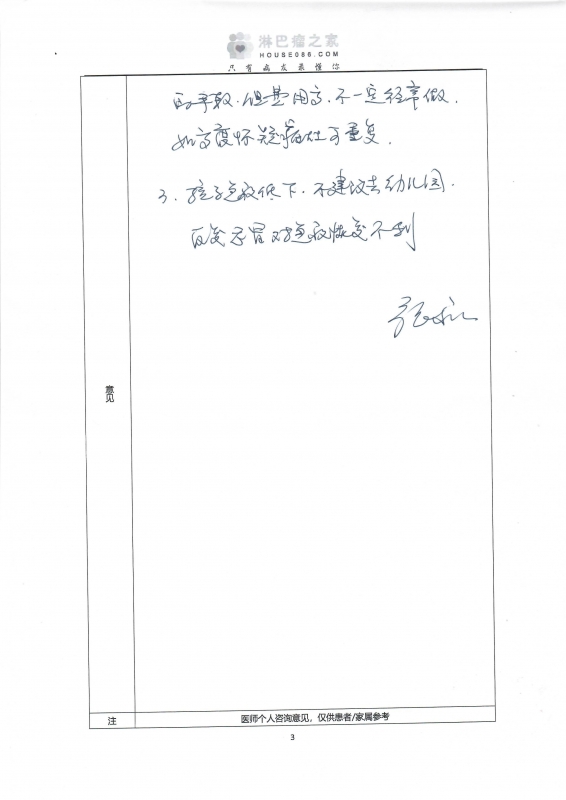 淋巴瘤之家
HOUSE086.COM
只有病友最懂你
但费用高．不一定经常做．
如高度怀疑病灶可重复．
3．孩子免疫低下．不建议去幼儿园．
反复感冒对免疫恢复不利
意见
注
医师个人咨询意见，仅供患者/家属参考
3